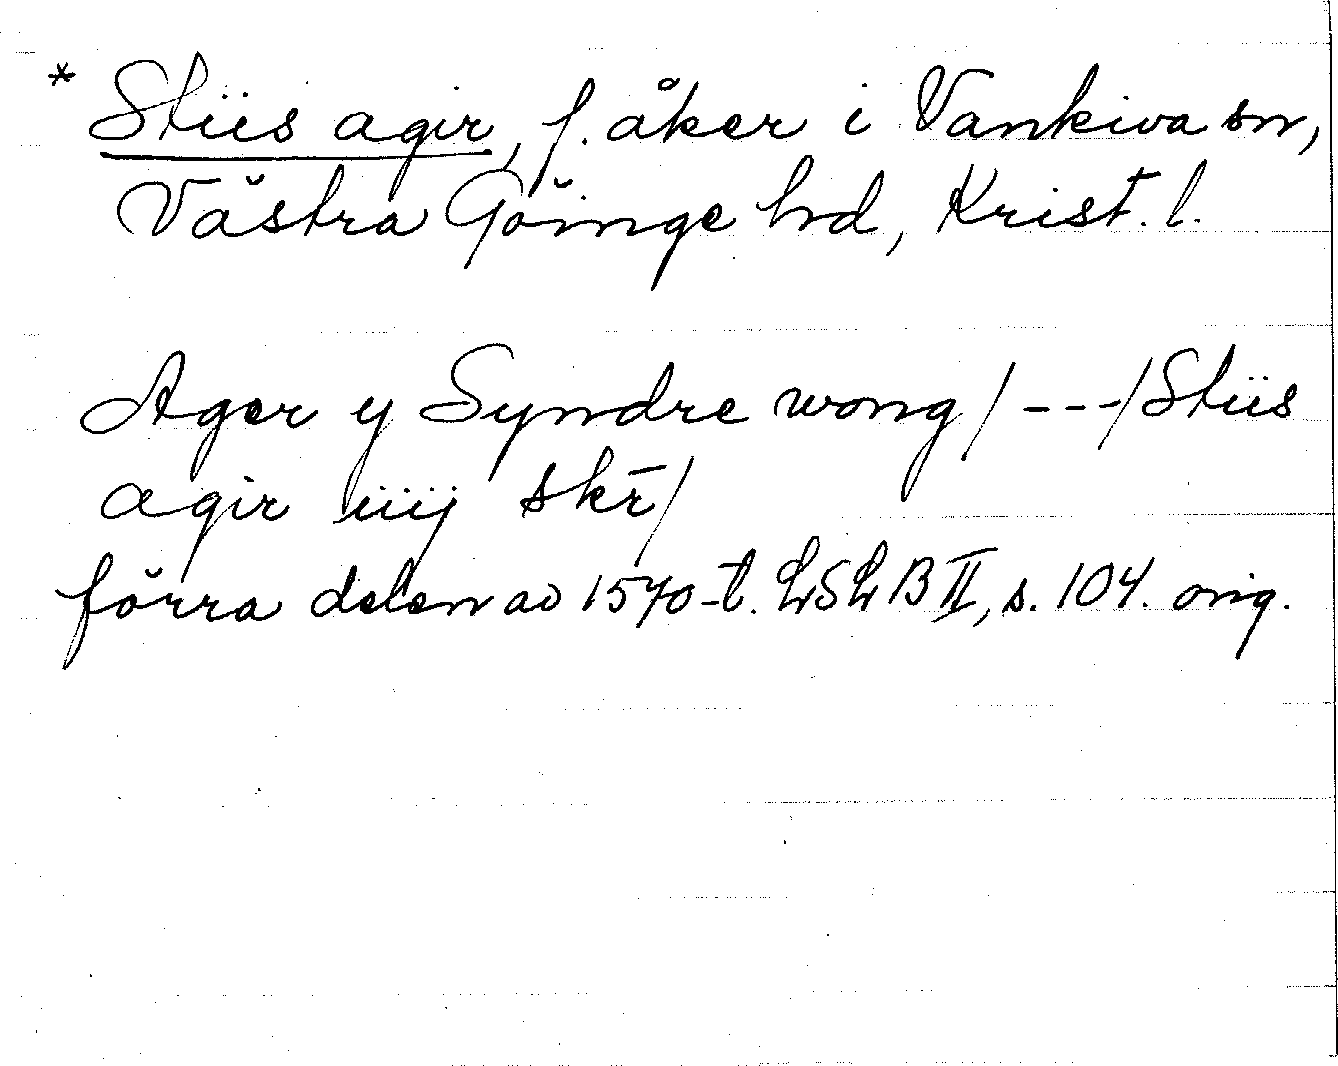 * Stiis agir, f. åker i Vankiva sn,
Västra Göinge hd, Krist. l.
Ager y Syndre wong / --- / Stiis
agir iiij skr̄ /
förra delen av 1570-t. LSLB II, s. 104. orig.